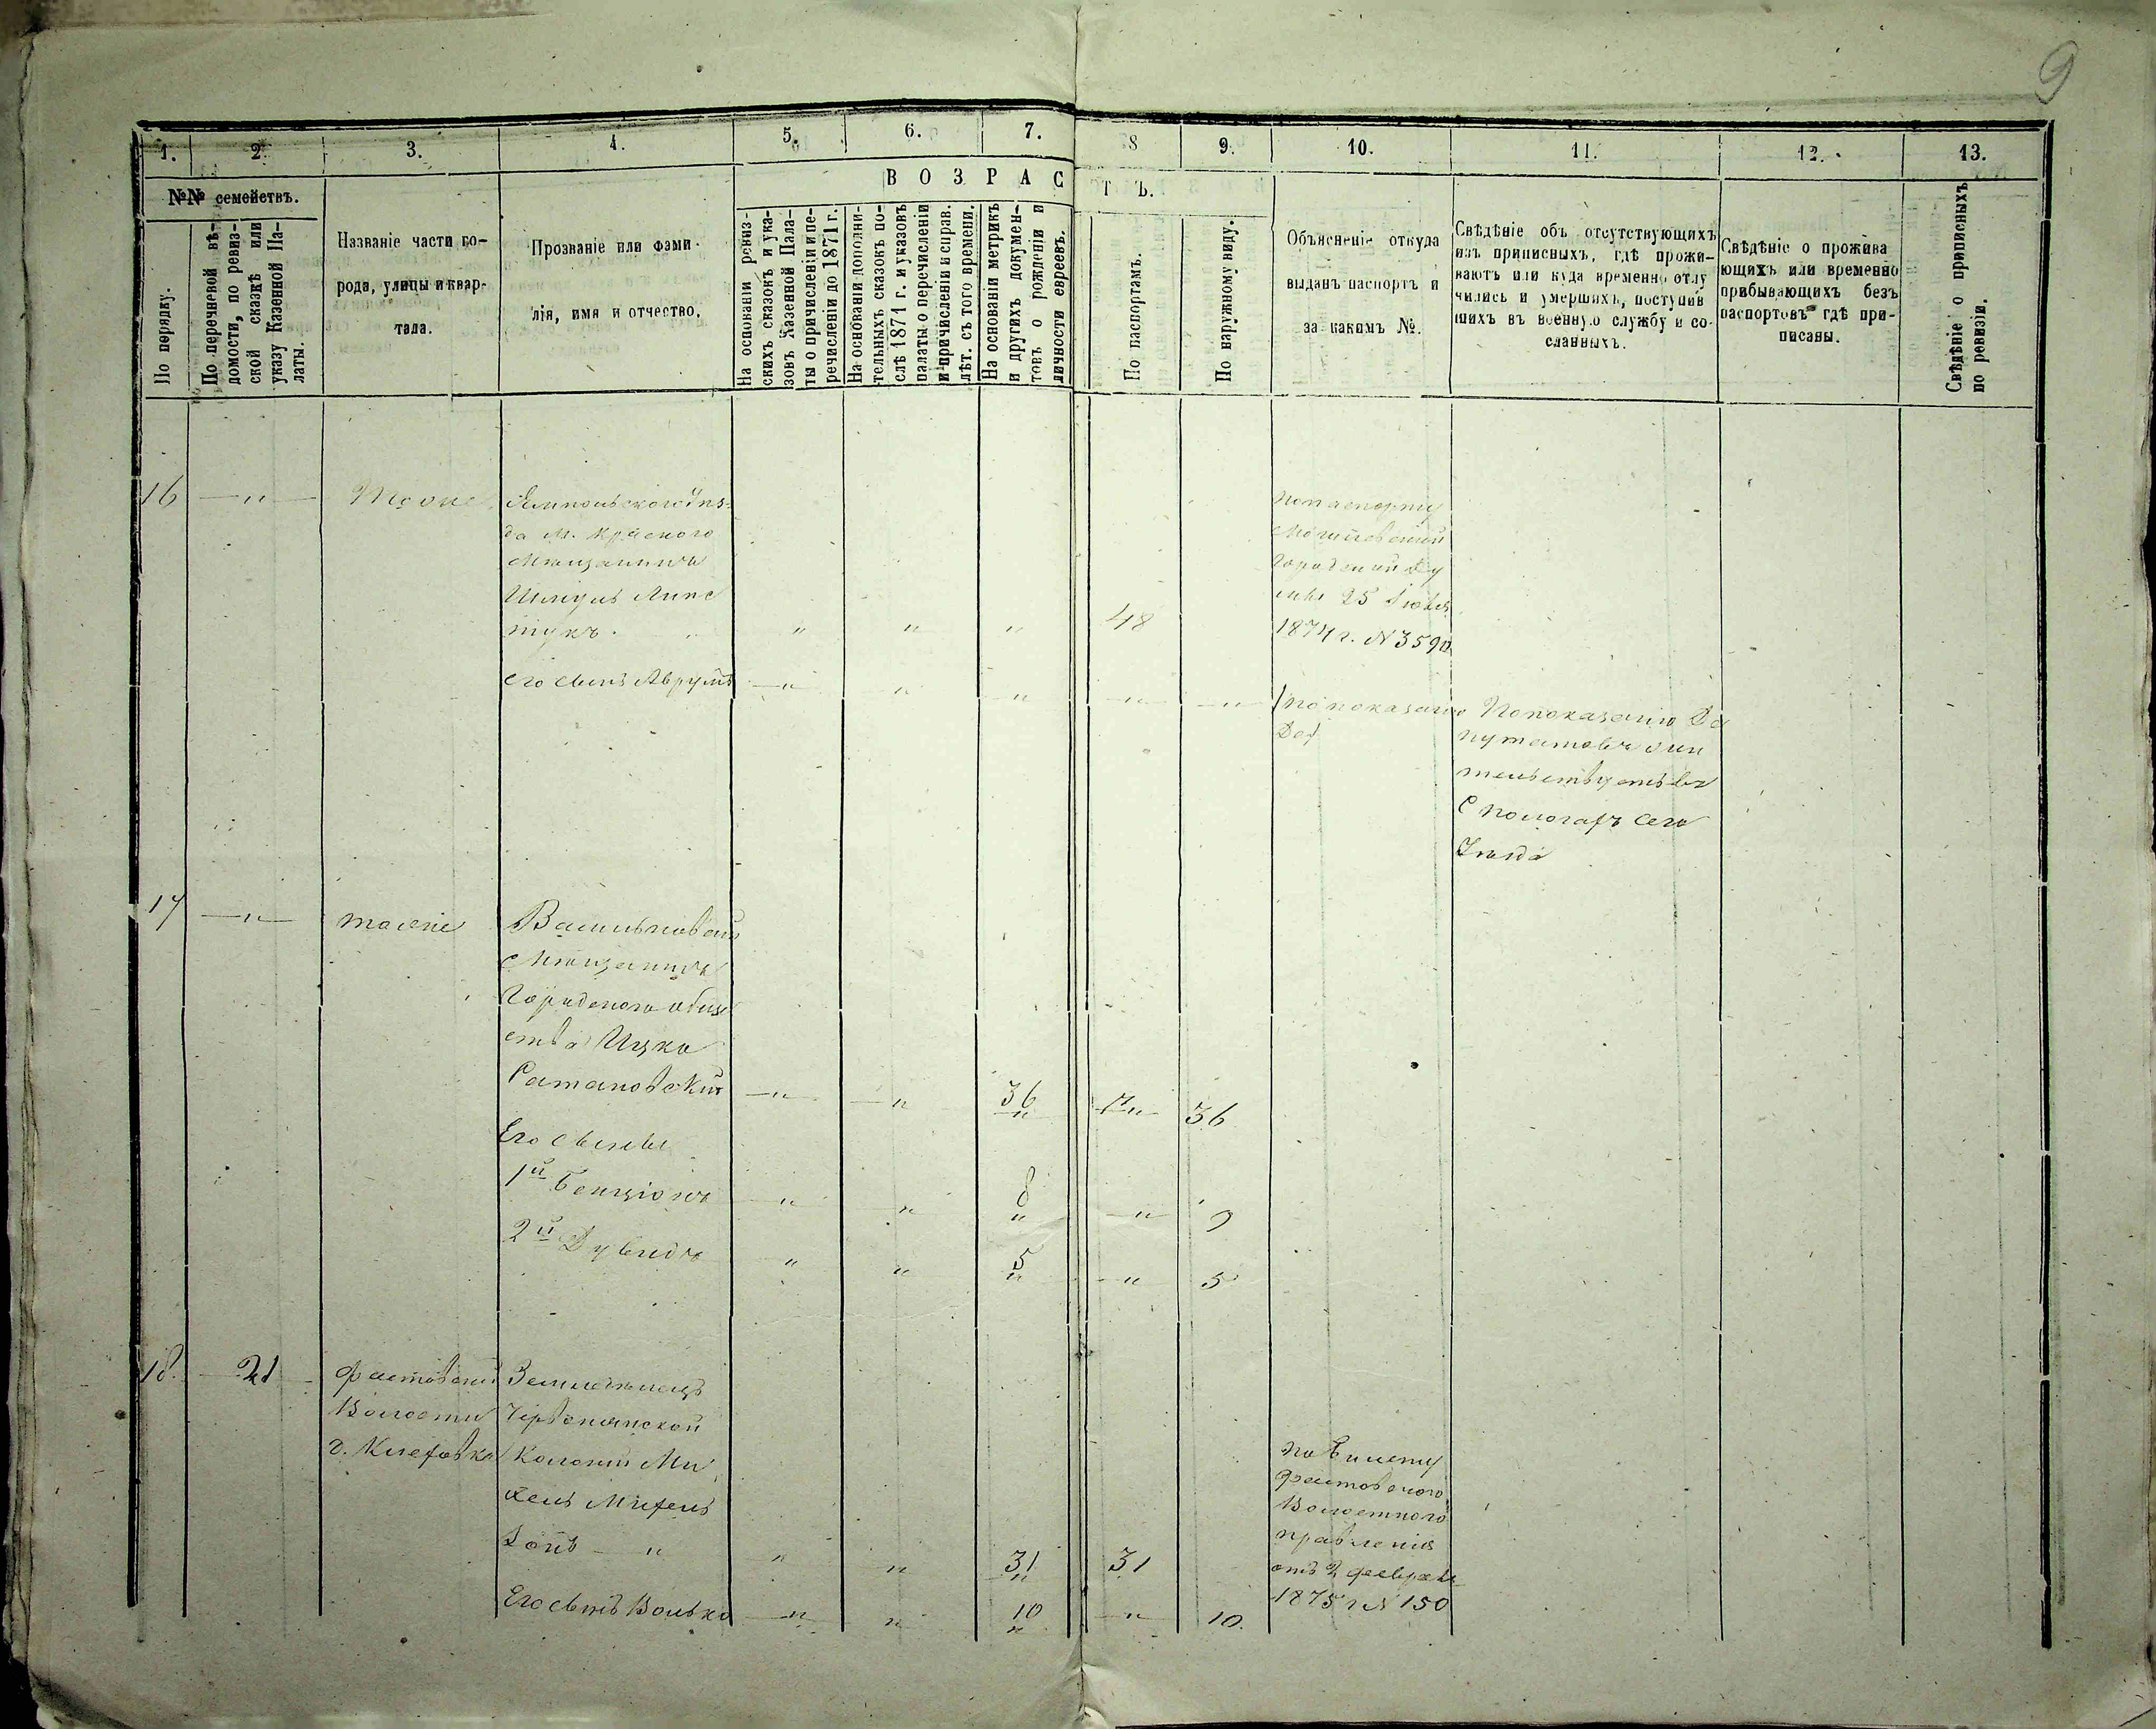 9
1. 2. 3. 4. 5. 6. 7. 8 9. 10. 11. 12. 13.
№№ семействъ.
По порядку.
По перечневой вѣ-
домости, по ревиз-
ской сказкѣ или
указу Казенной Па-
латы.
Названіе части го-
рода, улицы и квар-
тала.
Прозваніе или фами-
лія, имя и отчество.
ВОЗРАСТЪ.
На основаніи ревиз-
скихъ сказокъ и ука-
зовъ Казенной Пала-
ты о причисленіи и пе-
речисленіи до 1871 г.
На основаніи дополни-
тельныхъ сказокъ по-
слѣ 1871 г. и указовъ
палаты о перечисленіи
и причисленіи и справ.
лѣт. съ того времени.
На основаніи метрикъ
и другихъ докумен-
товъ о рожденіи и
личности евреевъ.
По паспортамъ.
По наружному виду.
Объясненіе откуда
выданъ паспортъ и
за какимъ №.
Свѣдѣніе объ отсутствующихъ
изъ приписныхъ, гдѣ прожи-
ваютъ или куда временно отлу
чились и умершихъ, поступив
шихъ въ военную службу и со-
сланныхъ.
Свѣдѣніе о прожива
ющихъ или временно
прибывающихъ безъ
паспортовъ гдѣ при-
писаны.
Свѣдѣніе о приписныхъ
по ревизіи.
16 — " —
Ямпольского Уѣз-
да м. Красного
Мѣщанинъ
Шмуль Липс
тукъ. " " " 48
по паспорту
Могилевской
Городской Ду
мы 25 Іюля
1874 г. № 3590
его сынъ Аврумъ — " — " " — " — — " —
по показанію
Деп
По показанію Де
путатовъ жи
тельствуетъ въ
с
сего
Уѣзда
17 — " — тоже
Васильковскій
Мѣщанинъ
Городского общ
ства Ицко
Ратановскій — " — — " 36 — " — 36
Его сыновья
1й Бенціонъ — " — " 8 — " — 9
2й Дувидъ " " 5 — " 5
18. 21
Фастовской
Волости
д. Клеховка
Земледѣлецъ
Червонянской
Колоніи Ми
хель Михель
Зонъ — " " " 31 31
по Билету
Фастовского
Волостного
правленія
отъ 2 февраля
1875 г № 150
Его сынъ Волько — " — " 10 — " — 10.